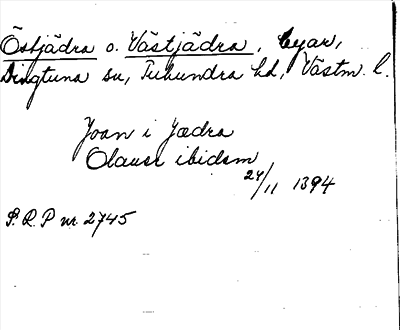 Östjädra o. Västjädra, byar,
Dingtuna sn, Tuhundra hd, Västm. l.
Joan i Jædra
Olauus ibidem
24/11 1394
S.R.P nr. 2745